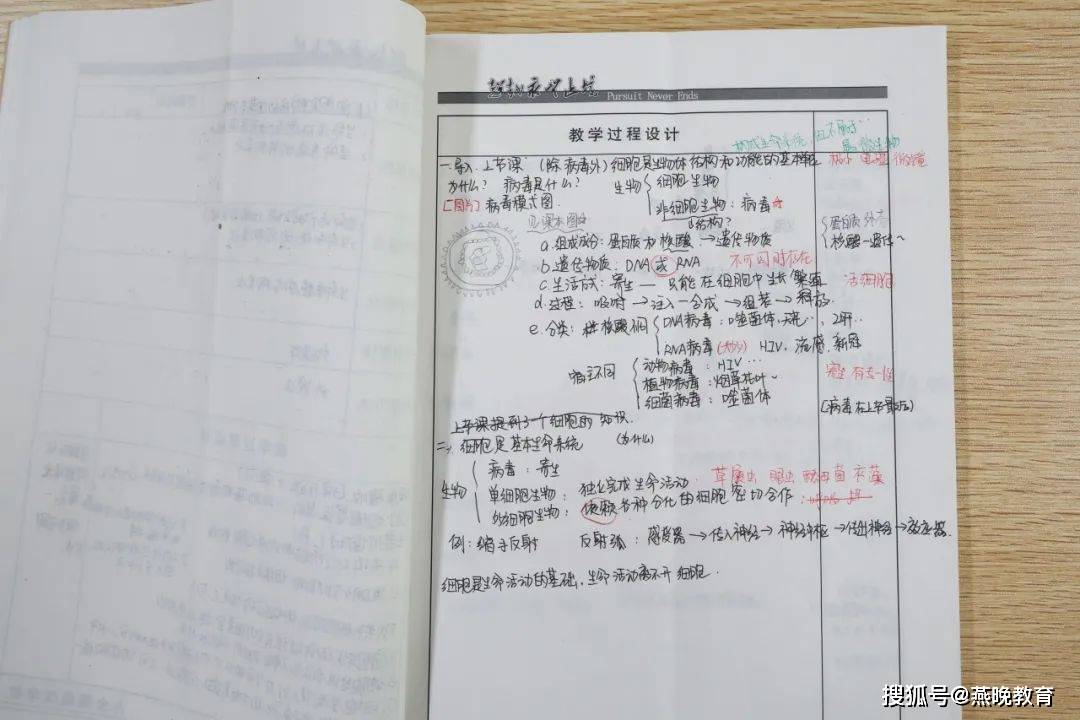 Pursuit Never Ends
教学过程设计
构成生命系统,但不属于…
一.导入.上节课 (除病毒外)细胞是生物体结构和功能的基本单位
为什么? 病毒是什么? 生物 细胞生物
[图片] 病毒模式图. 非细胞生物:病毒
结构?
见课本图
蛋白质外壳
a.组成成分:蛋白质和核酸→遗传物质
核酸
b.遗传物质:DNA或RNA 不可同时存在
c.生活方式:寄生— 只能在细胞中生长繁殖 活细胞
d.过程:吸附→注入→合成→组装→释放.
e.分类:核酸不同 DNA病毒:噬菌体
RNA病毒 HIV、流感、新冠
宿主不同 动物病毒:HIV…
植物病毒:烟草花叶~
细菌病毒:噬菌体
有专一性
上节课提到了一个细胞的知识.
二、细胞是基本生命系统 (为什么)
病毒:寄生
生物 单细胞生物:独立完成生命活动 草履虫 眼虫 酵母菌 衣藻
多细胞生物:依赖各种分化的细胞密切合作
例:缩手反射 反射弧:感受器→传入神经→神经中枢→传出神经→效应器.
细胞是生命活动的基础,生命活动离不开细胞.
搜狐号@燕晚教育